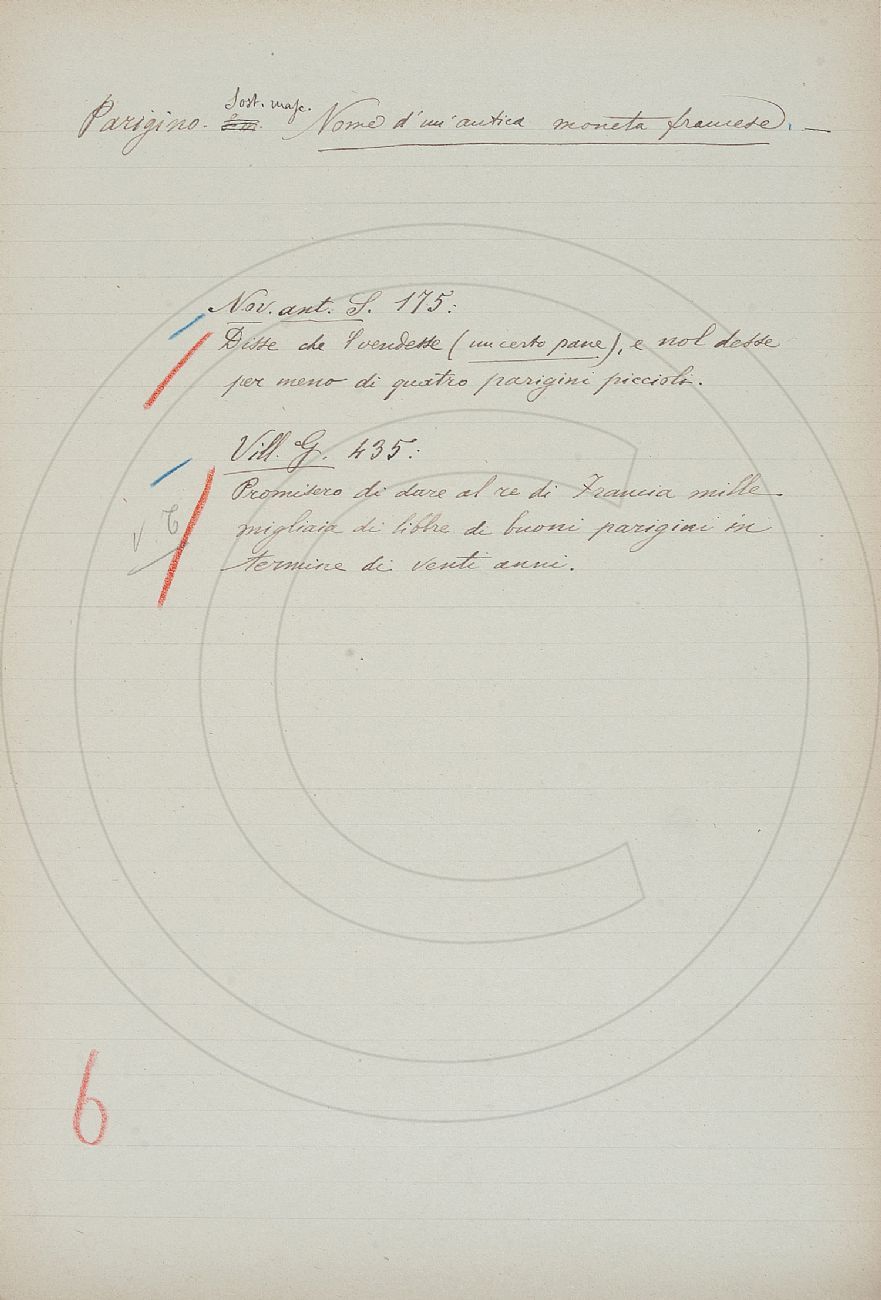 Parigino. Sost. masc. Nome d'un'antica moneta francese. —
Nov. ant. S. 175:
Disse che 'l vendesse (un certo pane), e nol desse
per meno di quatro parigini piccioli.
Vill. G. 435:
Promisero di dare al re di Francia mille
migliaia di libbre di buoni parigini in
termine di venti anni.
V T
6